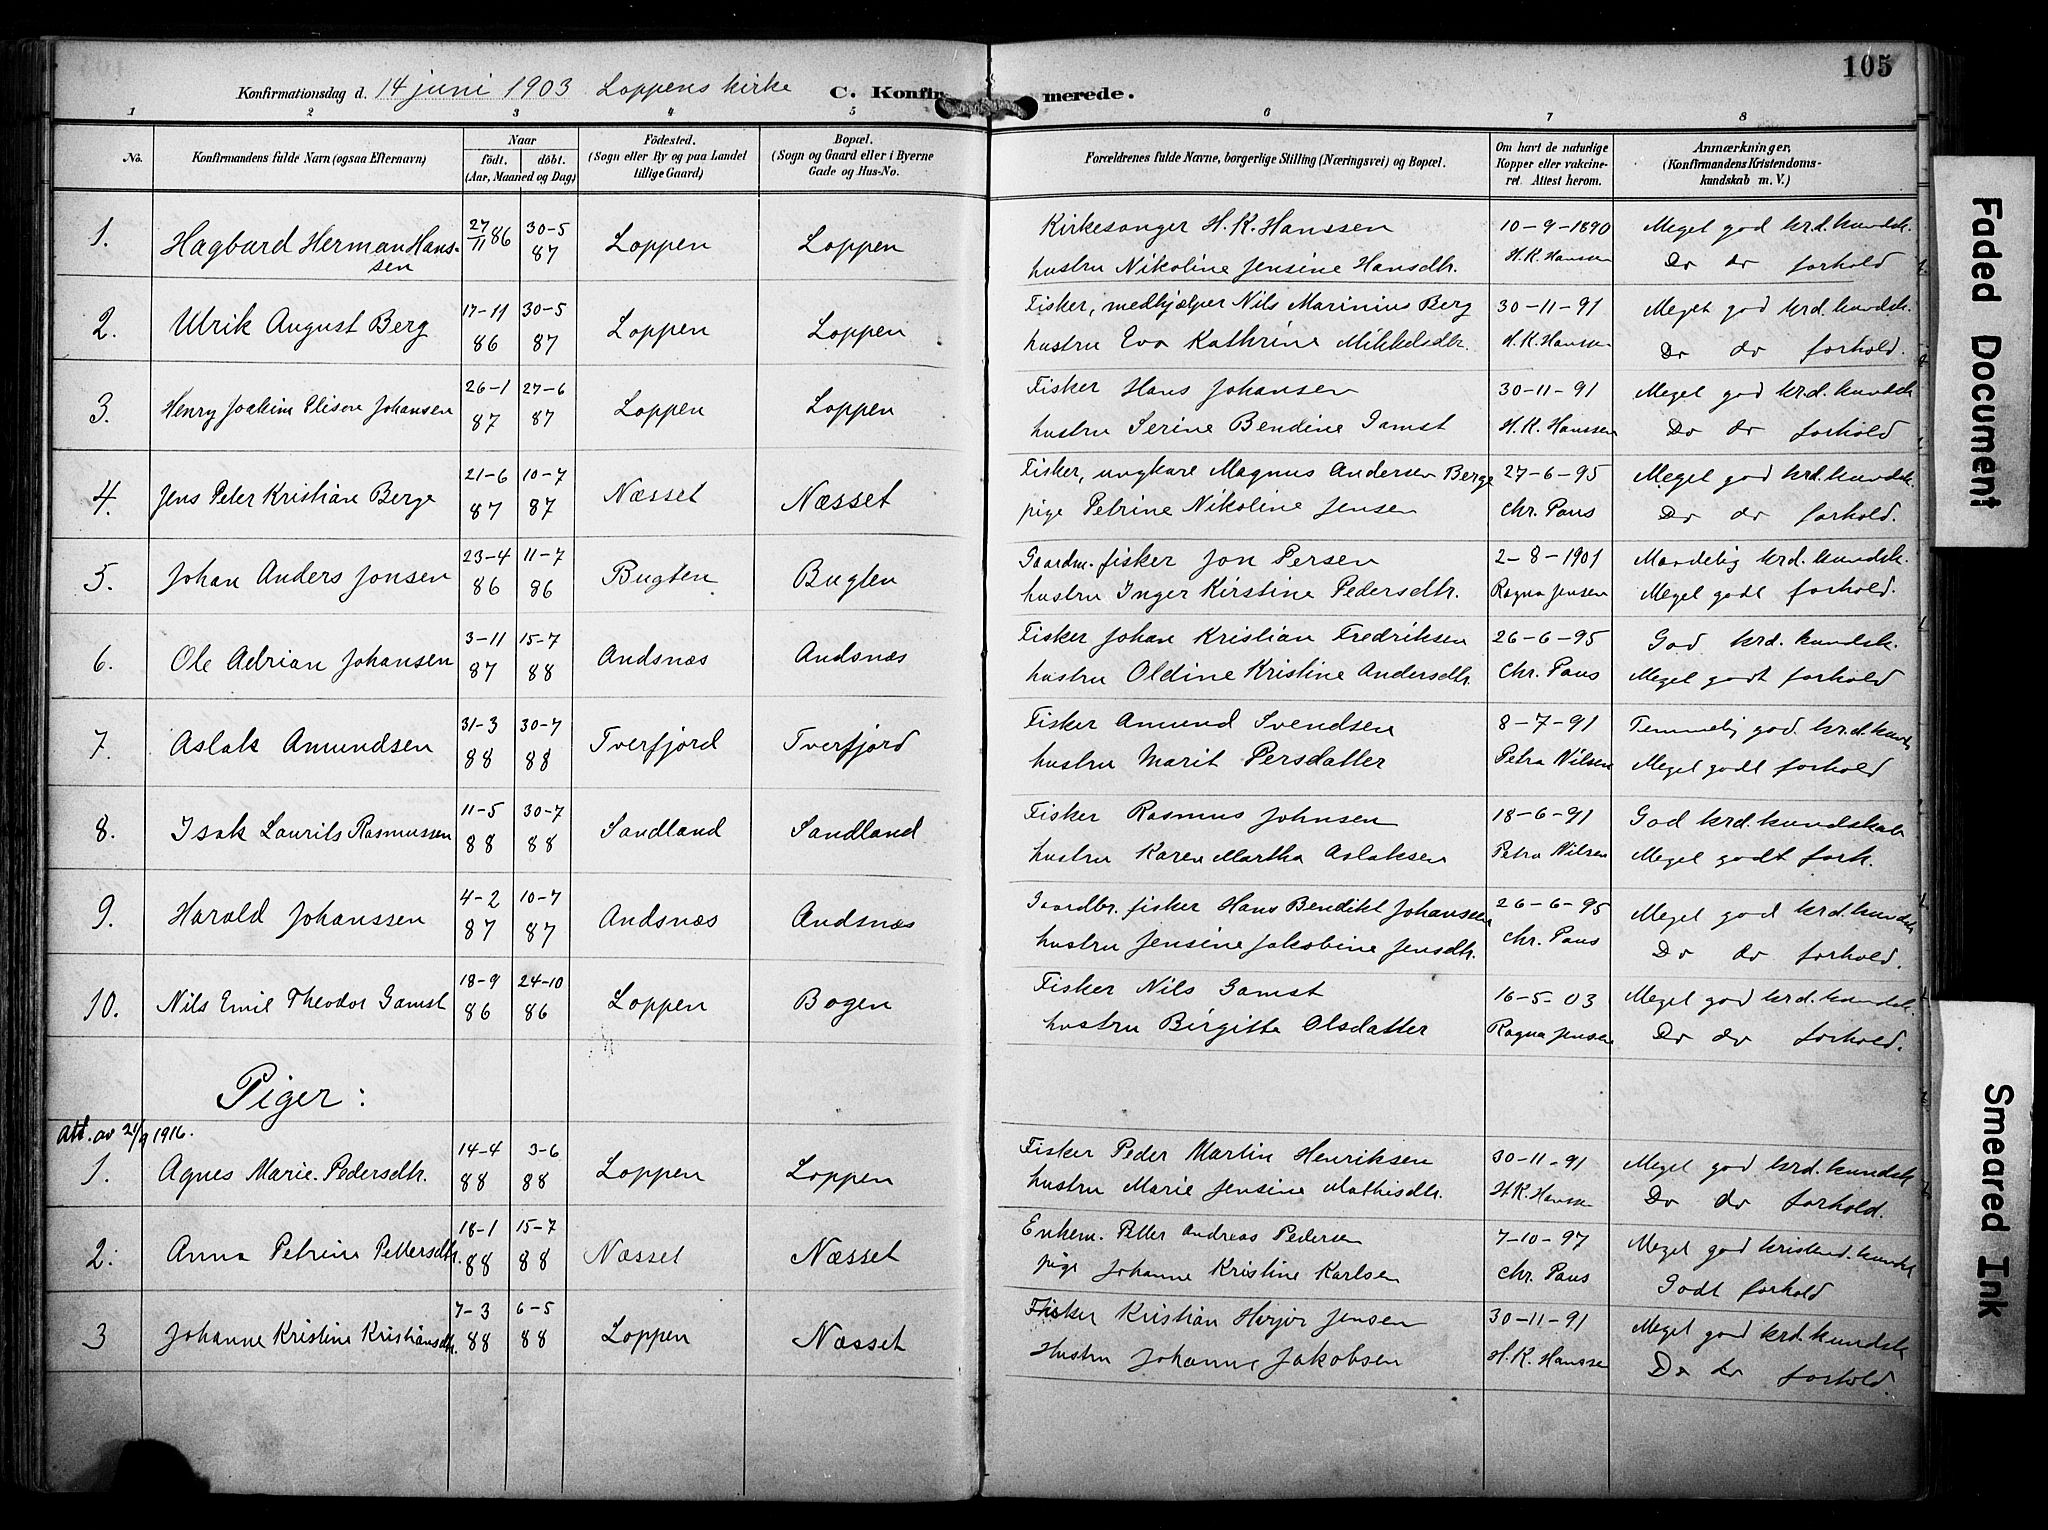 105
Konfirmationsdag d. 14 juni 1903 Loppens kirke C. Konfirmerede.
1 2 3 4 5 6 7 8
No. Konfirmandens fulde Navn (ogsaa Efternavn) Naar født. døbt. (Aar, Maaned og Dag) Fødested. (Sogn eller By og paa Landet tillige Gaard) Bopæl. (Sogn og Gaard eller i Byerne Gade og Hus-No. Forældrenes fulde Navne, borgerlige Stilling (Næringsvei) og Bopæl. Om havt de naturlige Kopper eller vakcineret. Attest herom. Anmærkninger, (Konfirmandens Kristendomskundskab m. V.)
1. Hagbard Herman Hanssen 27/11 86 30-5 87 Loppen Loppen Kirkesanger H. K. Hanssen 10-9-1890 Meget god krd. kundsk.
hustru Nikoline Jensine Hansdtr. H. K. Hanssen Do do forhold
2. Ulrik August Berg 17-11 86 30-5 87 Loppen Loppen Fisker, medhjælper Nils Marinius Berg 30-11-91 Meget god krd. kundsk.
hustru Eva Kathrine Mikkelsdtr. H. K. Hanssen Do do forhold.
3. Henry Joakim Elisere Johansen 26-1 87 27-6 87 Loppen Loppen Fisker Hans Johansen 30-11-91 Meget god krd. kundsk
hustru Serine Bendine Gamst H. K. Hanssen Do do forhold
4. Jens Peter Kristian Berge 21-6 87 10-7 87 Næsset Næsset Fisker, ungkare Magnus Andersen Berge 27-6-95 Meget god krd. kundsk.
pige Petrine Nikoline Jensen Chr. Paus Do do forhold.
5. Johan Anders Jonsen 23-4 86 11-7 86 Bugten Bugten Gaardm. fisker Jon Persen 2-8-1901 Maadelig krd. kundsk.
hustru Inger Kirstine Pedersdtr. Ragna Jensen Meget godt forhold.
6. Ole Adrian Johansen 3-11 87 15-7 88 Andsnæs Andsnæs Fisker Johan Kristian Fredriksen 26-6-95 God krd. kundsk.
hustru Oldine Kristine Andersdtr. Chr. Paus Meget godt forhold
7. Aslak Amundsen 31-3 88 30-7 88 Tverfjord Tverfjord Fisker Amund Svendsen 8-7-91 Temmelig god krd. kunds
hustru Marit Persdatter Petra Nilsen Meget godt forhold
8. Isak Laurits Rasmussen 11-5 88 30-7 88 Sandland Sandland Fisker Rasmus Johnsen 18-6-91 God krd. kundskab
hustru Karen Martha Aslaksen Petra Nilsen Meget godt forh.
9. Harald Johanssen 4-2 87 10-7 87 Andsnæs Andsnæs Gaardbr. fisker Hans Benedikt Johanssen 26-6-95 Meget god krd. kundsk
hustru Jensine Jakobine Jensdtr. Chr. Paus Do do forhold.
10. Nils Emil Theodor Gamst 18-9 86 24-10 86 Loppen Bogen Fisker Nils Gamst 16-5-03 Meget god krd. kundsk.
hustru Birgitte Olsdatter Ragna Jensen Do do forhold.
Piger:
Att. av 21/9 1916.
1. Agnes Marie Pedersdtr. 14-4 88 3-6 88 Loppen Loppen Fisker Peder Martin Henriksen 30-11-91 Meget god krd. kundsk
hustru Marie Jensine Mathisdtr. H. K. Hanssen Do do forhold.
2. Anna Petrine Pettersdtr. 18-1 88 15-7 88 Næsset Næsset Enkem. Petter Andreas Pedersen 7-10-97 Meget god kristend. kundsk
pige Johanne Kristine Karlsen Chr. Paus Godt forhold
3 Johanne Kristine Kristiansdtr. 7-3 88 6-5 88 Loppen Næsset Fisker Kristian Jensen 30-11-91 Meget god krd. kundsk
Hustru Johanne Jakobsen H. K. Hanssen Do do forhold.
Faded Document
Smeared Ink